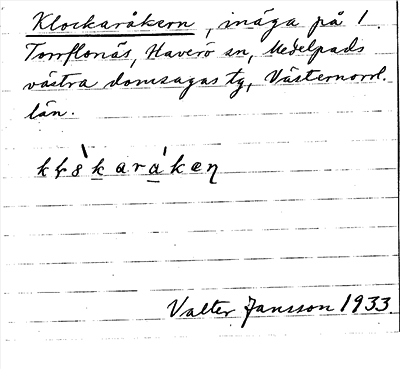 Klockaråkern, inäga på 1
Torrflonäs, Haverö sn, Medelpads
västra domsagas tg, Västernorrl.
län.
Valter Jansson 1933